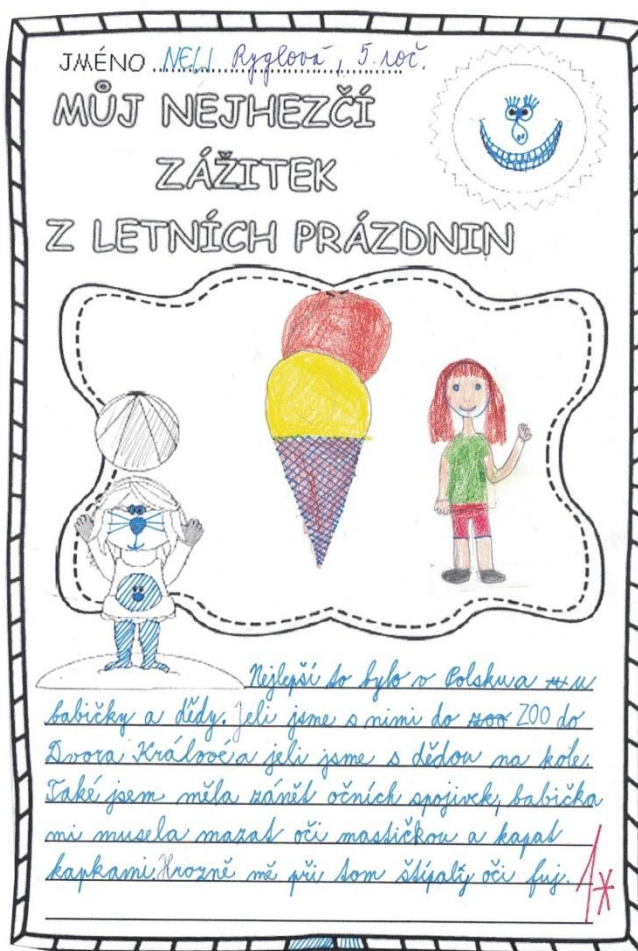 JMÉNO NELI Ryglová, 5. roč.
MŮJ NEJHEZČÍ
ZÁŽITEK
Z LETNÍCH PRÁZDNIN
Nejlepší to bylo v Polsku a u
babičky a dědy. Jeli jsme s nimi do zoo ZOO do
Dvora Králové a jeli jsme s dědou na kole.
Také jsem měla zánět očních spojivek, babička
mi musela mazat oči mastičkou a kapat
kapkami. Hrozně mě při tom štípaly oči fuj.
1*